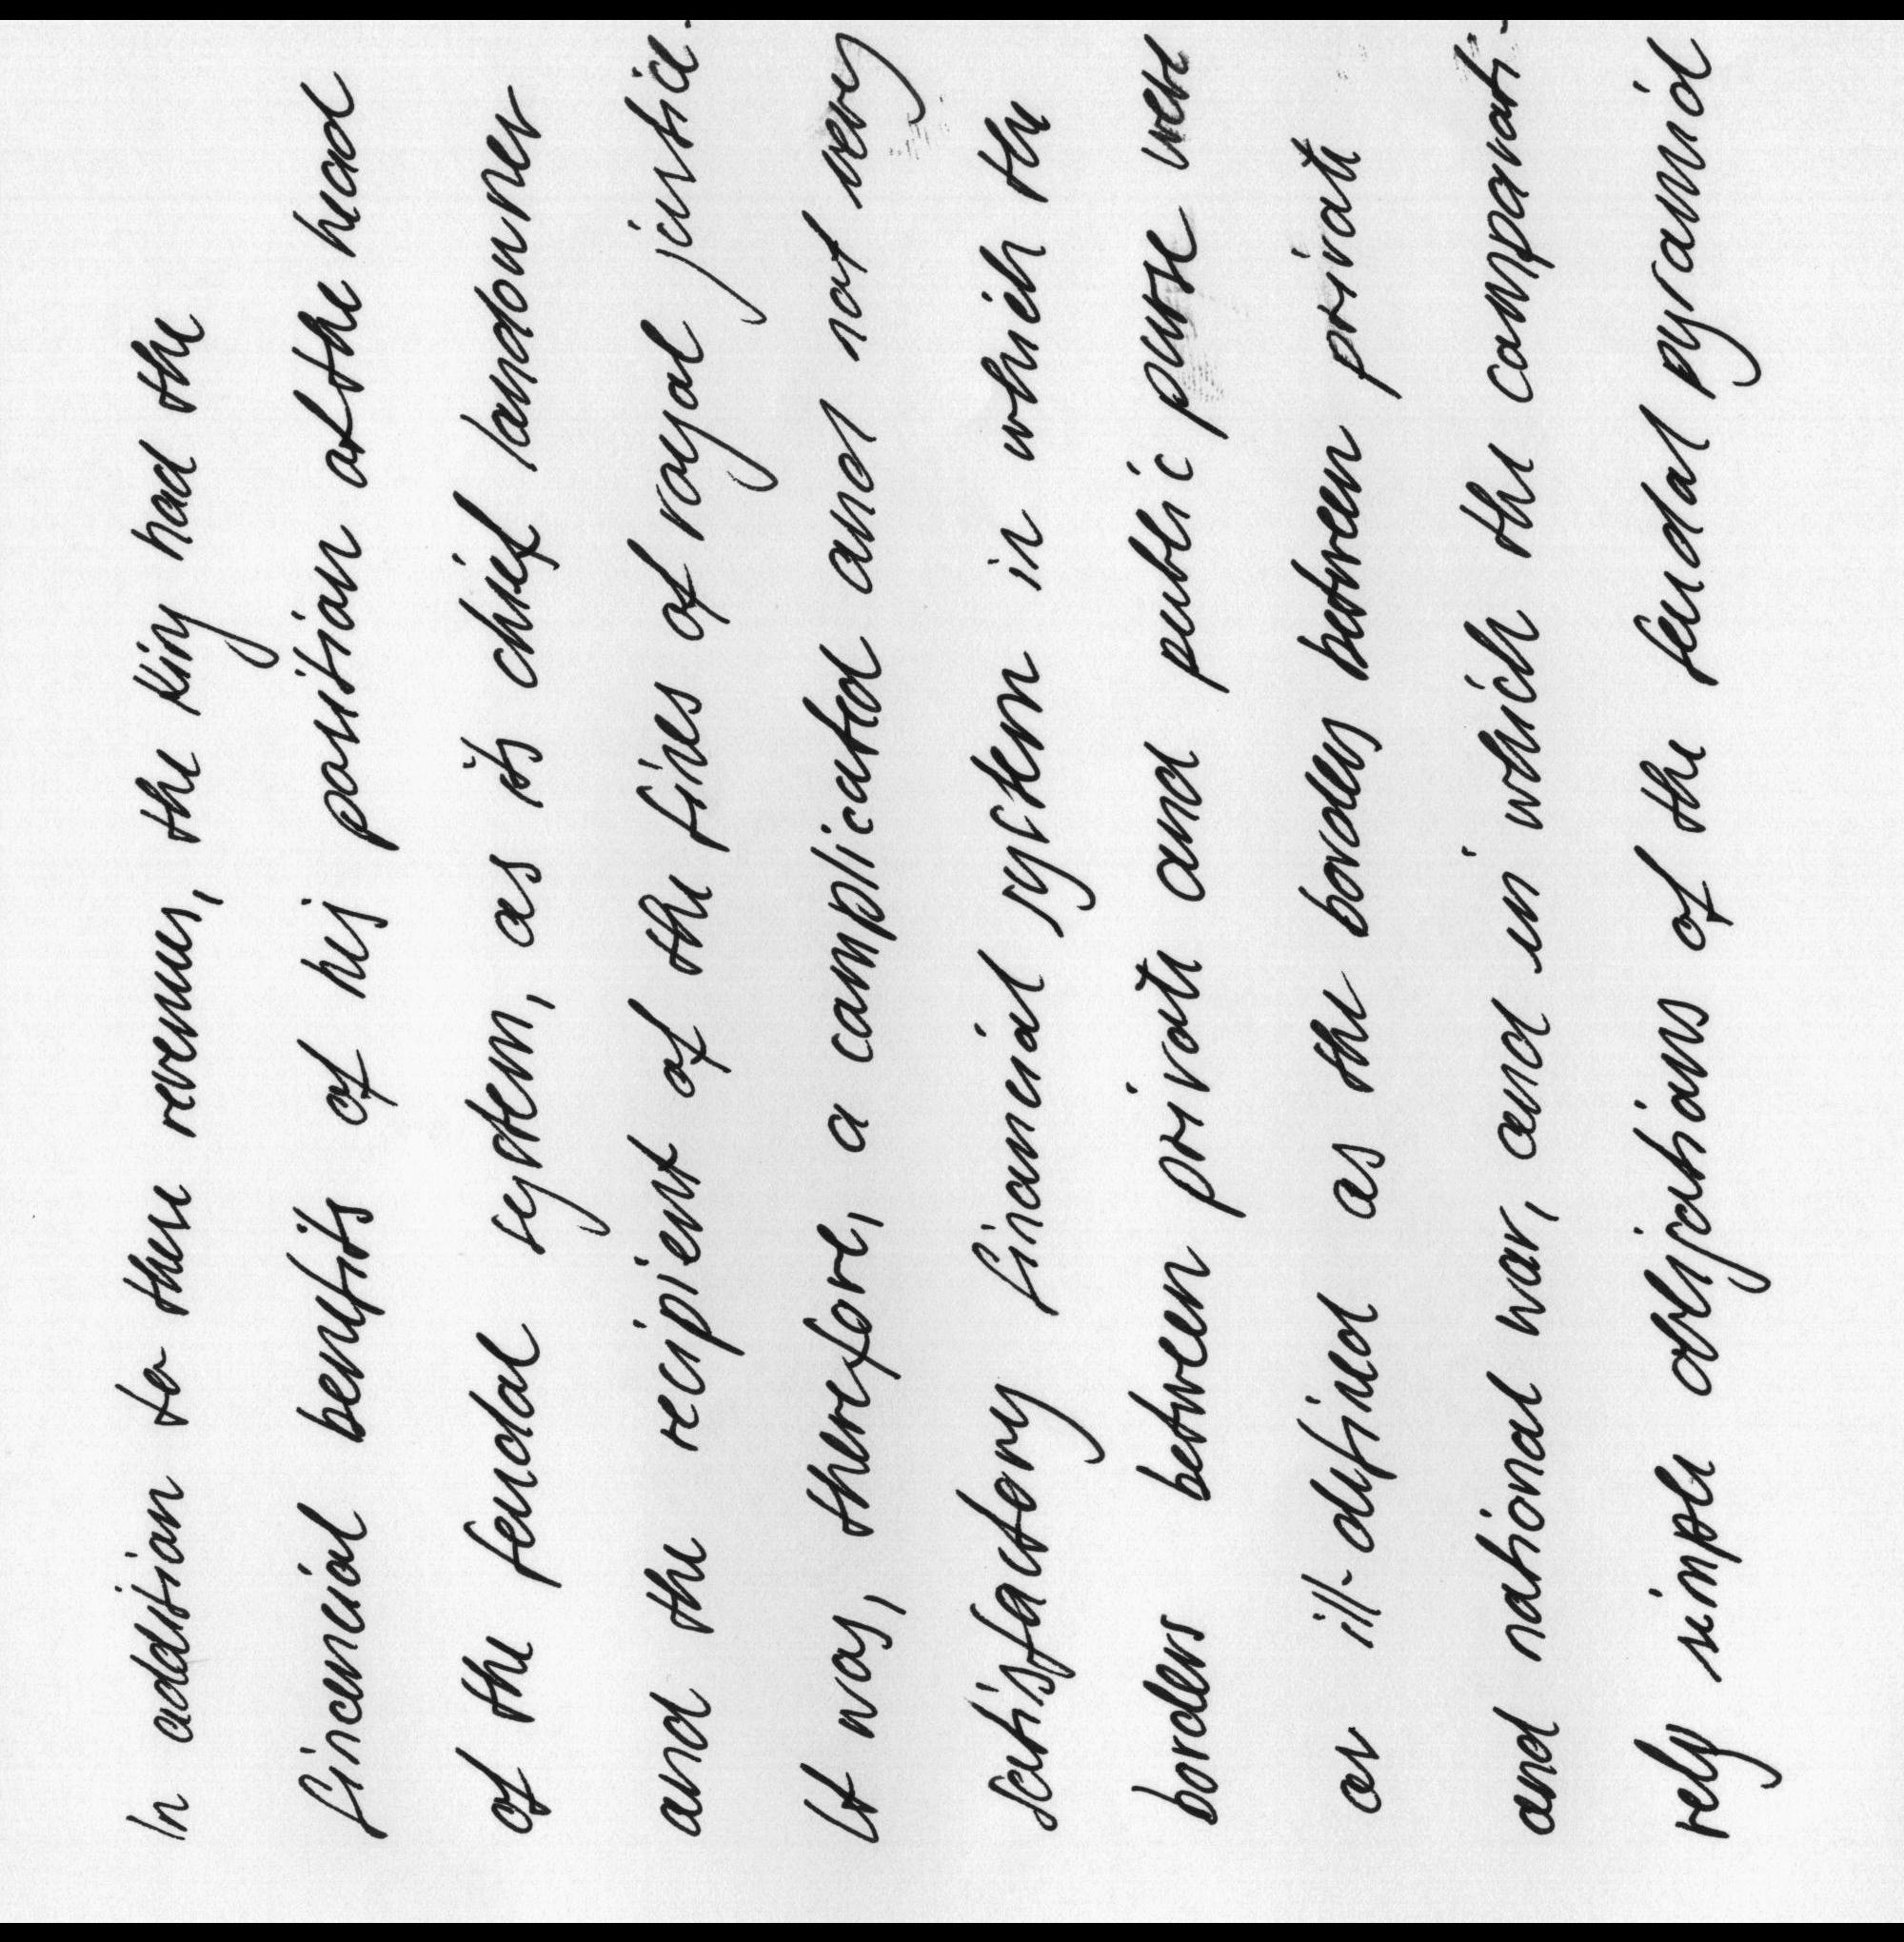 In addition to these revenues, the King had the
financial benefits of his position at the head
of the feudal system, as its chief landowner
and the recipient of the fines of royal justice.
It was, therefore, a complicated and not very
satisfactory financial system in which the
borders between private and public purse were
as ill-defined as the borders between private
and national war, and in which the comparati-
rely simple obligations of the feudal pyramid